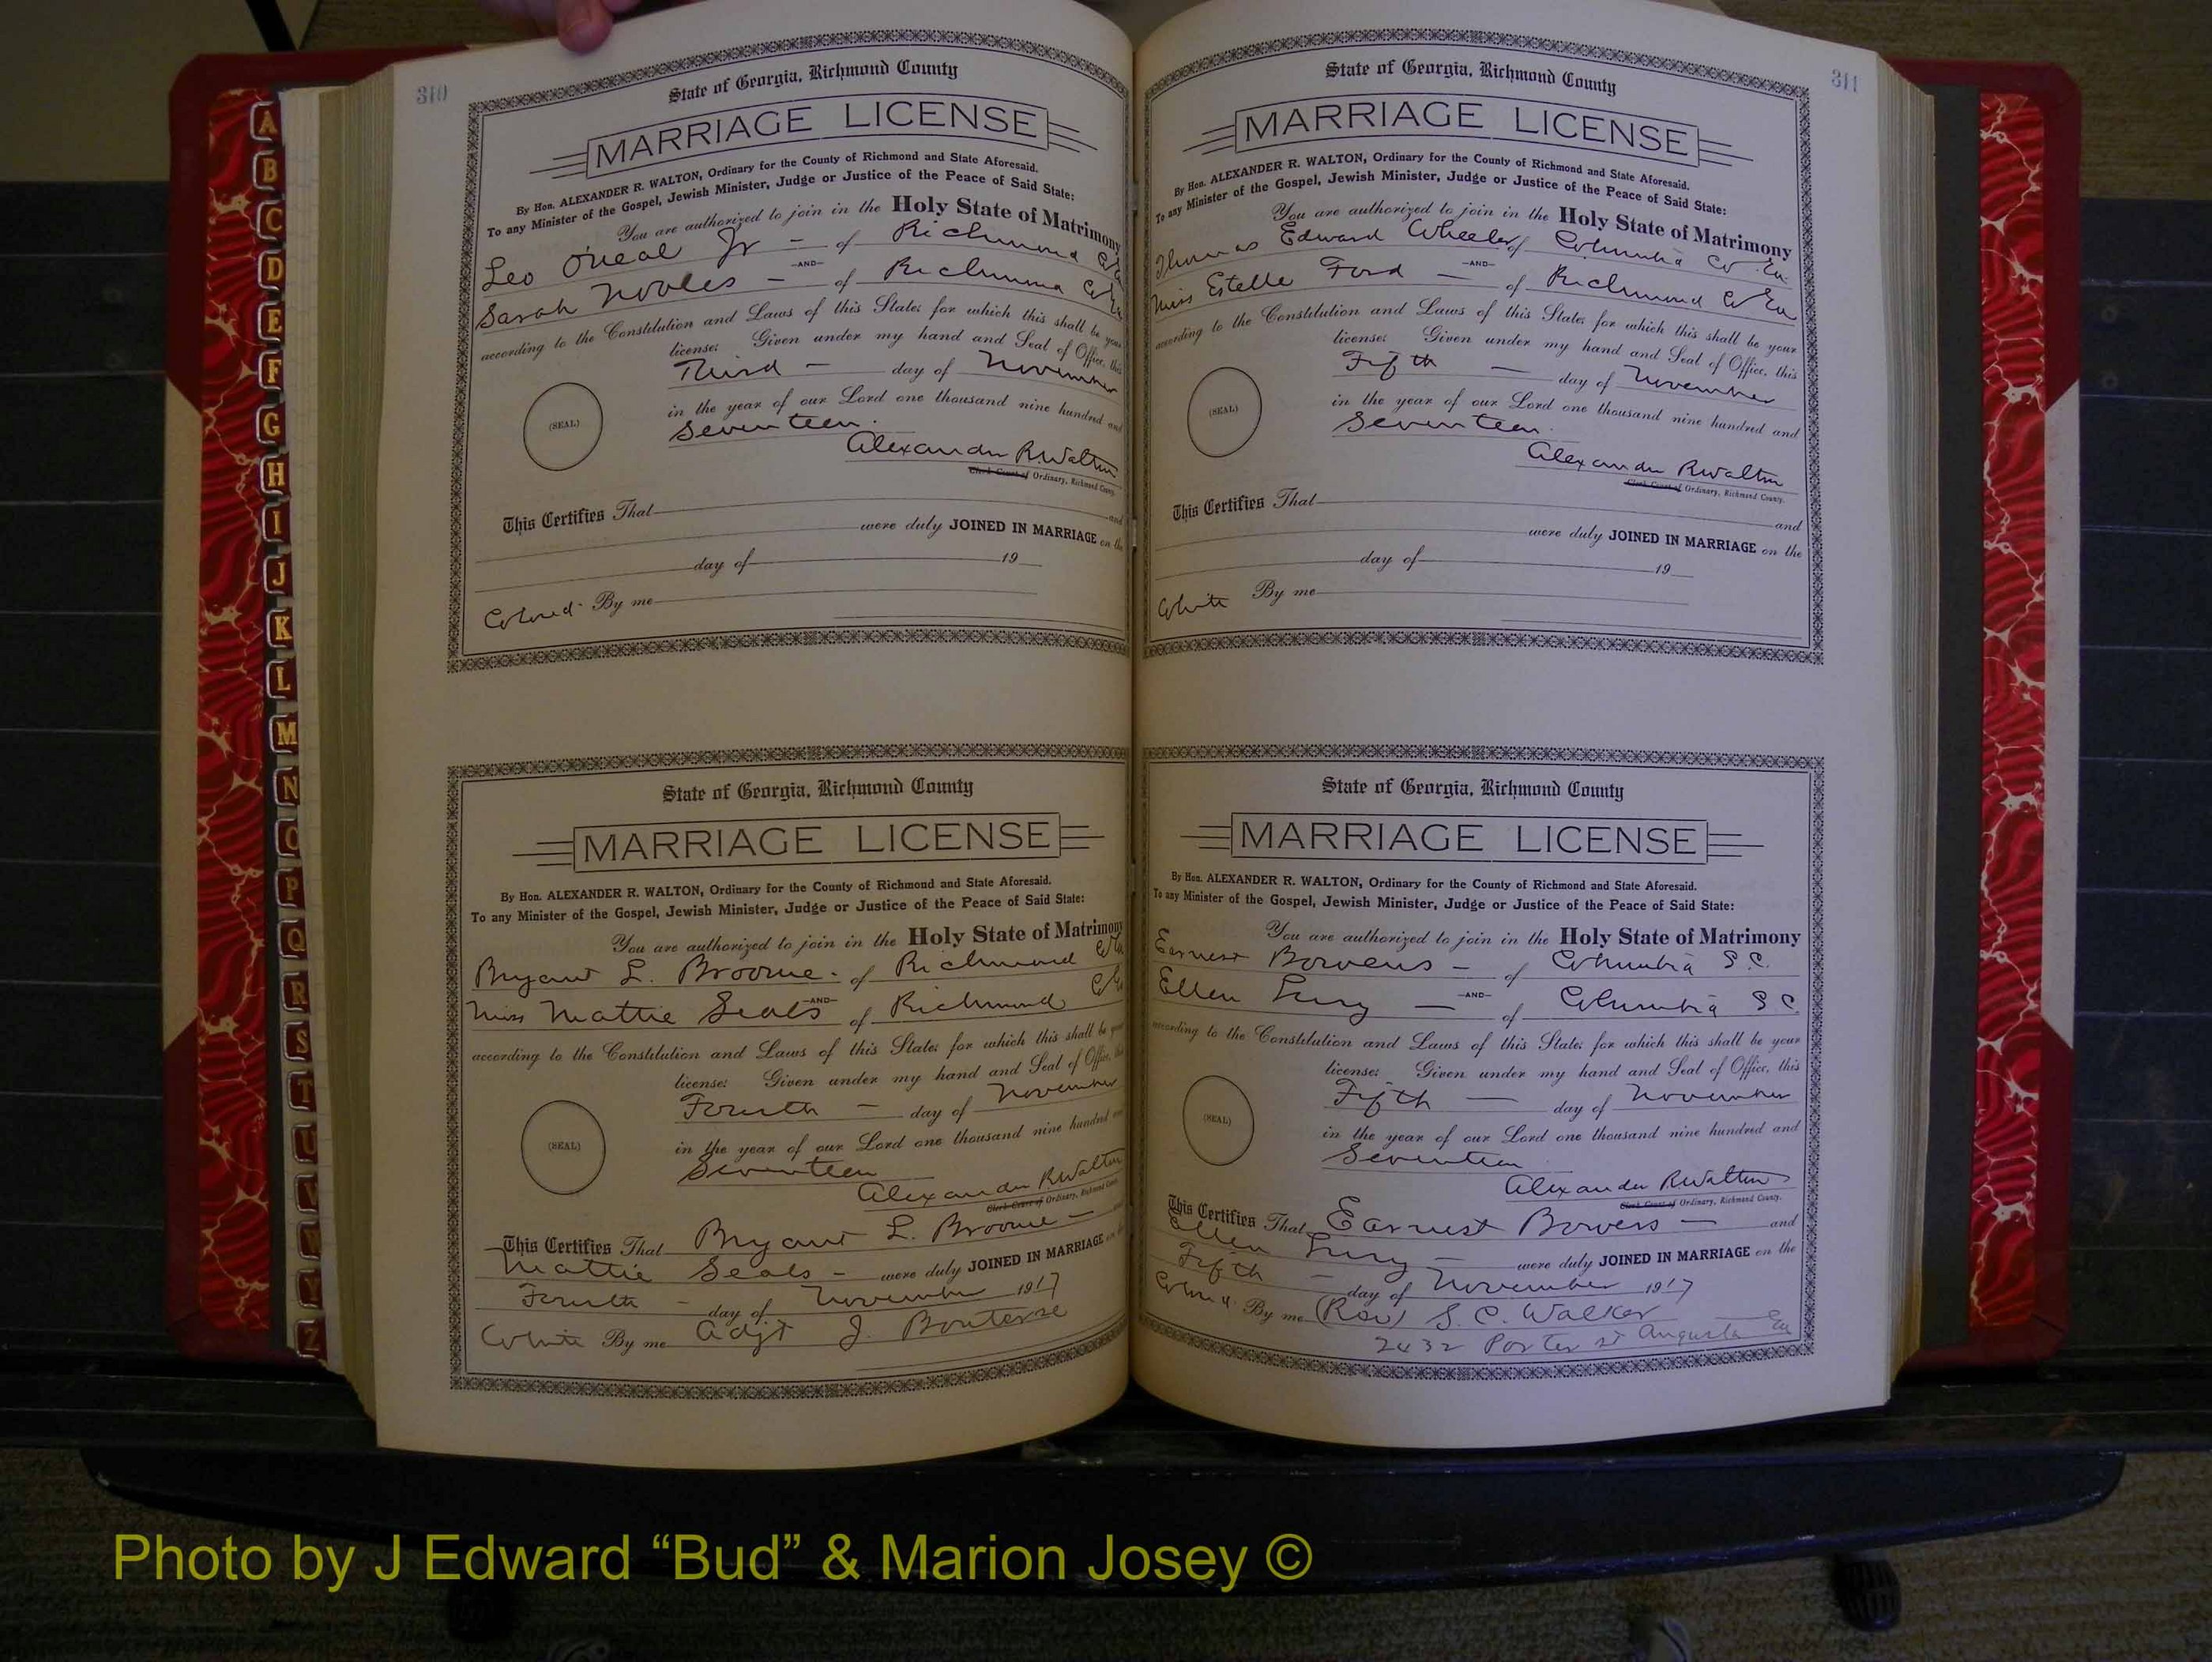 310
State of Georgia, Richmond County
MARRIAGE LICENSE
By Hon. ALEXANDER R. WALTON, Ordinary for the County of Richmond and State Aforesaid.
To any Minister of the Gospel, Jewish Minister, Judge or Justice of the Peace of Said State:
You are authorized to join in the Holy State of Matrimony
Leo O'neal Jr - of Richmond Co Ga
-AND-
Sarah Nobles - of Richmond Co Ga
according to the Constitution and Laws of this State; for which this shall be your
license: Given under my hand and Seal of Office, this
Third - day of November
in the year of our Lord one thousand nine hundred and
Seventeen.
(SEAL)
Alexander R Walton
Clerk Court of Ordinary, Richmond County.
This Certifies That and
were duly JOINED IN MARRIAGE on the
day of 19
Colored. By me
State of Georgia, Richmond County
MARRIAGE LICENSE
By Hon. ALEXANDER R. WALTON, Ordinary for the County of Richmond and State Aforesaid.
To any Minister of the Gospel, Jewish Minister, Judge or Justice of the Peace of Said State:
You are authorized to join in the Holy State of Matrimony
Bryant L. Broome - of Richmond Co Ga
-AND-
Miss Mattie Seals of Richmond Co Ga
according to the Constitution and Laws of this State; for which this shall be your
license: Given under my hand and Seal of Office, this
Fourth - day of November
in the year of our Lord one thousand nine hundred and
Seventeen
(SEAL)
Alexander R Walton
Clerk Court of Ordinary, Richmond County.
This Certifies That Bryant L. Broome - and
Mattie Seals - were duly JOINED IN MARRIAGE on the
Fourth - day of November 1917
White By me Adjt J. Bouterse
311
State of Georgia, Richmond County
MARRIAGE LICENSE
By Hon. ALEXANDER R. WALTON, Ordinary for the County of Richmond and State Aforesaid.
To any Minister of the Gospel, Jewish Minister, Judge or Justice of the Peace of Said State:
You are authorized to join in the Holy State of Matrimony
Thomas Edward Wheeler of Columbia Co Ga
-AND-
Miss Estelle Ford - of Richmond Co Ga
according to the Constitution and Laws of this State; for which this shall be your
license: Given under my hand and Seal of Office, this
Fifth - day of November
in the year of our Lord one thousand nine hundred and
Seventeen.
(SEAL)
Alexander R Walton
Clerk Court of Ordinary, Richmond County.
This Certifies That and
were duly JOINED IN MARRIAGE on the
day of 19
White By me
State of Georgia, Richmond County
MARRIAGE LICENSE
By Hon. ALEXANDER R. WALTON, Ordinary for the County of Richmond and State Aforesaid.
To any Minister of the Gospel, Jewish Minister, Judge or Justice of the Peace of Said State:
You are authorized to join in the Holy State of Matrimony
Earnest Bowens - of Columbia S.C.
-AND-
Ellen - of Columbia S C.
according to the Constitution and Laws of this State; for which this shall be your
license: Given under my hand and Seal of Office, this
Fifth - day of November
in the year of our Lord one thousand nine hundred and
Seventeen
(SEAL)
Alexander R Walton
Clerk Court of Ordinary, Richmond County.
This Certifies That Earnest Bowers - and
Ellen - were duly JOINED IN MARRIAGE on the
Fifth - day of November 1917
Colored. By me (Rev) S. C. Walker
2432 Porter St Augusta Ga
A
B
C
D
E
F
G
H
I
J
K
L
M
N
O
P
Q
R
S
T
U
V
W
Y
Z
Photo by J Edward “Bud” & Marion Josey ©